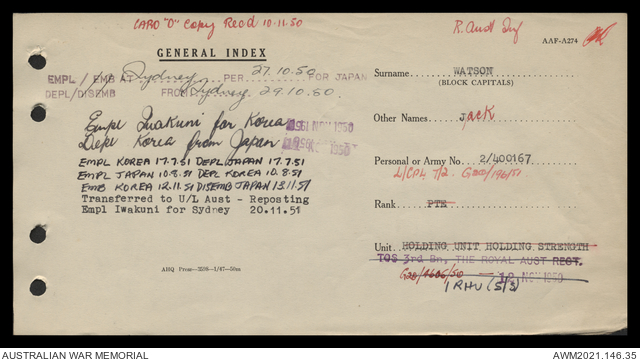 CARO "O" Copy Recd 10.11.50
R. Aust Inf
AAF-A274
GENERAL INDEX
EMPL / EMB AT Sydney PER 27.10.50 FOR JAPAN
DEPL/DISEMB FROM Sydney 29.10.50.
Empl Iwakuni for Korea NOV 1950
Depl Korea from Japan 1950
EMPL KOREA 17.7.51 DEPL JAPAN 17.7.51
EMPL JAPAN 10.8.51 DEPL KOREA 10.8.51
EMB KOREA 12.11.51 DISEMB JAPAN 13.11.51
Transferred to U/L Aust - Reposting
Empl Iwakuni for Sydney 20.11.51
AHQ Press—3598—1/47—50m
Surname: WATSON
(BLOCK CAPITALS)
Other Names: JACK
Personal or Army No. 2/400167
L/CPL T/2 G200/196/51
Rank PTE
Unit HOLDING UNIT HOLDING STRENGTH
TOS 3rd Bn, THE ROYAL AUST REGT.
NOV 1950
1 RHU (S/S)
AUSTRALIAN WAR MEMORIAL
AWM2021.146.35